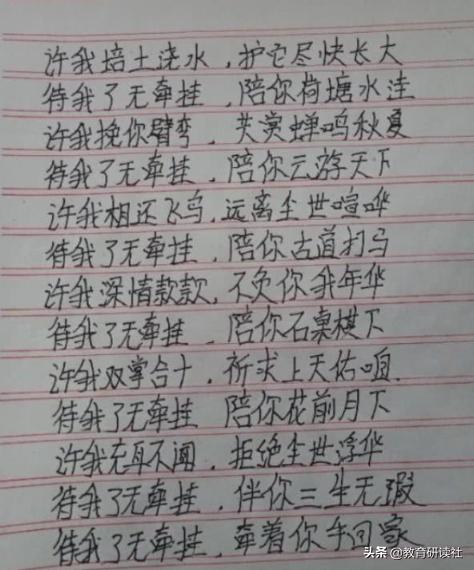 许我培土浇水，护它尽快长大
待我了无牵挂，陪你荷塘水洼
许我挽你臂弯，共赏蝉鸣秋夏
待我了无牵挂，陪你云游天下
许我相还飞鸟，远离尘世喧哗
待我了无牵挂，陪你古道打马
许我深情款款，不负你我年华
待我了无牵挂，陪你石桌棋下
许我双掌合十，祈求上天佑咱.
待我了无牵挂 陪你花前月下
许我充耳不闻，拒绝尘世浮华
待我了无牵挂，伴你三生无瑕
待我了无牵挂，牵着你手回家
头条 @教育研读社